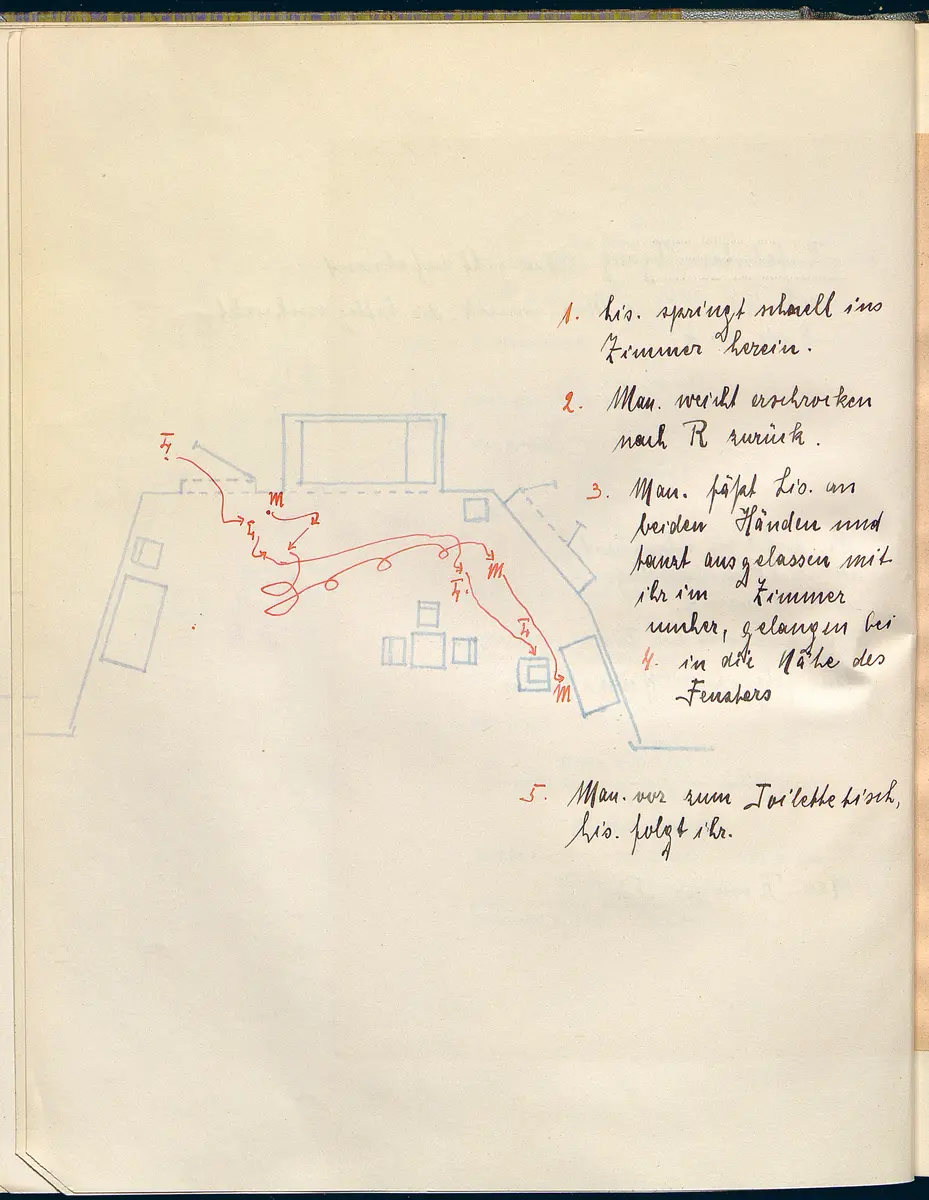 1. Lis. springt schnell ins
Zimmer herein.
2. Man. weicht erschrocken
nach R zurück.
3. Man. faßt Lis. an
beiden Händen und
tanzt ausgelassen mit
ihr im Zimmer
umher, gelangen bei
4. in die Nähe des
Fensters
5. Man. vor zum Toilettetisch,
Lis. folgt ihr.
L
M
L
M
L
L
M